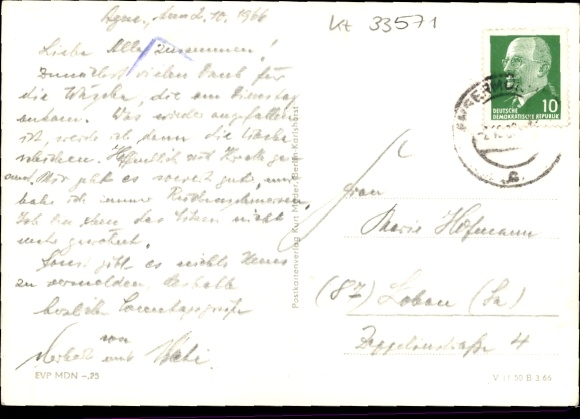 den 2.10.1966
Kt 33571
Liebe Alle zusammen!
Zunächst vielen Dank für
die Wäsche, die am Dienstag
ankam. Was wieder angefallen
ist, werde ich dann die Woche
Hoffentlich seit
Mir geht es soweit gut, nur
habe ich immer Rückenschmerzen.
Ich bin eben das Sitzen nicht
mehr gewöhnt.
Sonst gibt es nichts Neues
zu vermelden. Deshalb
herzliche Sonntagsgrüße
von
und
EVP MDN -,25
Postkartenverlag Kurt Mader, Berlin-Karlshorst
10
DEUTSCHE
DEMOKRATISCHE REPUBLIK
Frau
Marie Hofmann
(87) Löbau (Sa)
Zeppelinstraße 4
V 11 50 B 3.65